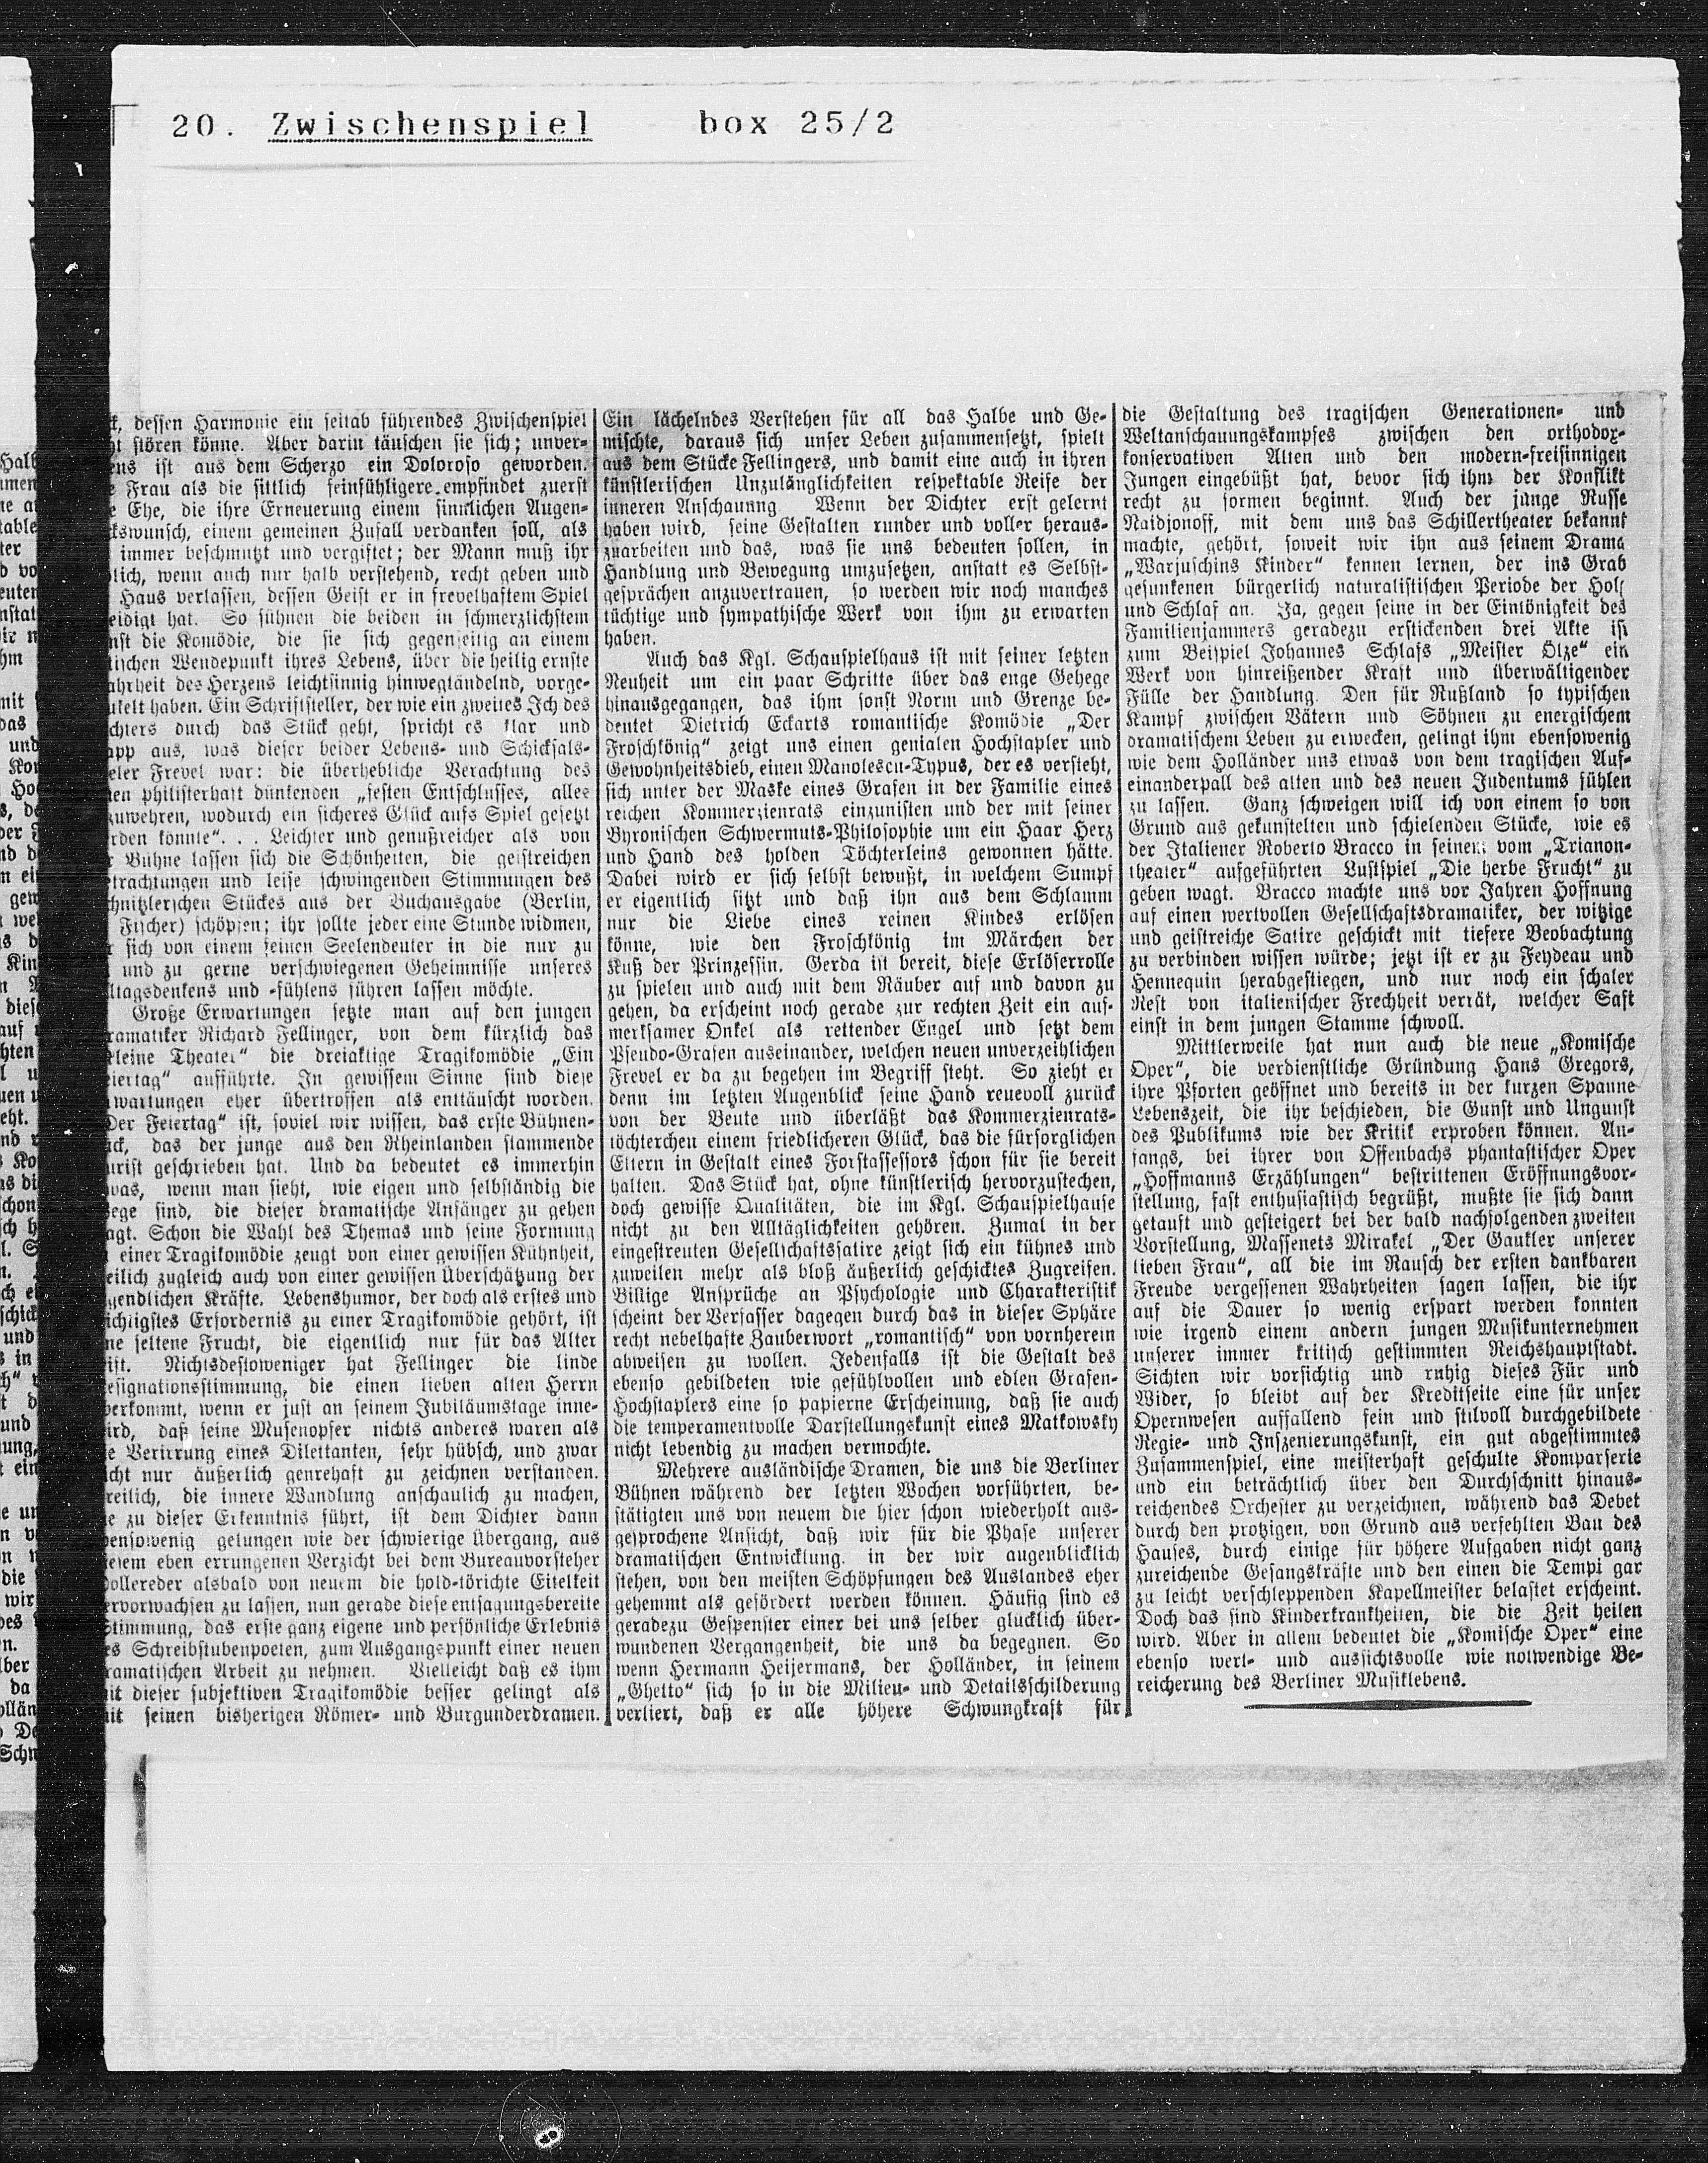 20. Zwischenspiel box 25/2
dessen Harmonie ein seitab führendes Zwischenspiel
stören könne. Aber darin täuschen sie sich; unver-
ist aus dem Scherzo ein Doloroso geworden.
Frau als die sittlich feinfühligere empfindet zuerst
Ehe, die ihre Erneuerung einem sinnlichen Augen-
einem gemeinen Zufall verdanken soll, als
immer beschmutzt und vergiftet; der Mann muß ihr
wenn auch nur halb verstehend, recht geben und
Haus verlassen, dessen Geist er in frevelhaftem Spiel
hat. So sühnen die beiden in schmerzlichstem
die Komödie, die sie sich gegenseitig an einem
Wendepunkt ihres Lebens, über die heilig ernste
des Herzens leichtsinnig hinwegtändelnd, vorge-
haben. Ein Schriftsteller, der wie ein zweites Ich des
durch das Stück geht, spricht es klar und
aus, was dieser beider Lebens- und Schicksals-
Frevel war: die überhebliche Verachtung des
philisterhaft dünkenden „festen Entschlusses, alles
wodurch ein sicheres Glück aufs Spiel gesetzt
könnte“. . . Leichter und genußreicher als von
Bühne lassen sich die Schönheiten, die geistreichen
und leise schwingenden Stimmungen des
Stückes aus der Buchausgabe (Berlin,
Fischer) schöpfen; ihr sollte jeder eine Stunde widmen,
sich von einem feinen Seelendeuter in die nur zu
und zu gerne verschwiegenen Geheimnisse unseres
und -fühlens führen lassen möchte.
Große Erwartungen setzte man auf den jungen
Richard Fellinger, von dem kürzlich das
Theater“ die dreiaktige Tragikomödie „Ein
aufführte. In gewissem Sinne sind diese
eher übertroffen als enttäuscht worden.
Der Feiertag“ ist, soviel wir wissen, das erste Bühnen-
das der junge aus den Rheinlanden stammende
geschrieben hat. Und da bedeutet es immerhin
wenn man sieht, wie eigen und selbständig die
sind, die dieser dramatische Anfänger zu gehen
Schon die Wahl des Themas und seine Formung
einer Tragikomödie zeugt von einer gewissen Kühnheit,
zugleich auch von einer gewissen Überschätzung der
Kräfte. Lebenshumor, der doch als erstes und
Erfordernis zu einer Tragikomödie gehört, ist
seltene Frucht, die eigentlich nur für das Alter
Nichtsdestoweniger hat Fellinger die linde
die einen lieben alten Herrn
wenn er just an seinem Jubiläumstage inne-
daß seine Musenopfer nichts anderes waren als
Verirrung eines Dilettanten, sehr hübsch, und zwar
nur äußerlich genrehaft zu zeichnen verstanden.
die innere Wandlung anschaulich zu machen,
zu dieser Erkenntnis führt, ist dem Dichter dann
gelungen wie der schwierige Übergang, aus
eben errungenen Verzicht bei dem Bureauvorsteher
alsbald von neuem die hold-törichte Eitelkeit
zu lassen, nun gerade diese entsagungsbereite
Stimmung, das erste ganz eigene und persönliche Erlebnis
Schreibstubenpoeten, zum Ausgangspunkt einer neuen
Arbeit zu nehmen. Vielleicht daß es ihm
dieser subjektiven Tragikomödie besser gelingt als
seinen bisherigen Römer- und Burgunderdramen.
Ein lächelndes Verstehen für all das Halbe und Ge-
mischte, daraus sich unser Leben zusammensetzt, spielt
aus dem Stücke Fellingers, und damit eine auch in ihren
künstlerischen Unzulänglichkeiten respektable Reife der
inneren Anschauung Wenn der Dichter erst gelernt
haben wird, seine Gestalten runder und voller heraus-
zuarbeiten und das, was sie uns bedeuten sollen, in
Handlung und Bewegung umzusetzen, anstatt es Selbst-
gesprächen anzuvertrauen, so werden wir noch manches
tüchtige und sympathische Werk von ihm zu erwarten
haben.
Auch das Kgl. Schauspielhaus ist mit seiner letzten
Neuheit um ein paar Schritte über das enge Gehege
hinausgegangen, das ihm sonst Norm und Grenze be-
deutet Dietrich Eckarts romantische Komödie „Der
Froschkönig“ zeigt uns einen genialen Hochstapler und
Gewohnheitsdieb, einen Manolescu-Typus, der es versteht,
sich unter der Maske eines Grafen in der Familie eines
reichen Kommerzienrats einzunisten und der mit seiner
Byronischen Schwermuts-Philosophie um ein Haar Herz
und Hand des holden Töchterleins gewonnen hätte.
Dabei wird er sich selbst bewußt, in welchem Sumpf
er eigentlich sitzt und daß ihn aus dem Schlamm
nur die Liebe eines reinen Kindes erlösen
könne, wie den Froschkönig im Märchen der
Kuß der Prinzessin. Gerda ist bereit, diese Erlöserrolle
zu spielen und auch mit dem Räuber auf und davon zu
gehen, da erscheint noch gerade zur rechten Zeit ein auf-
merksamer Onkel als rettender Engel und setzt dem
Pseudo-Grafen auseinander, welchen neuen unverzeihlichen
Frevel er da zu begehen im Begriff steht. So zieht er
denn im letzten Augenblick seine Hand reuevoll zurück
von der Beute und überläßt das Kommerzienrats-
töchterchen einem friedlicheren Glück, das die fürsorglichen
Eltern in Gestalt eines Forstassessors schon für sie bereit
halten. Das Stück hat, ohne künstlerisch hervorzustechen,
doch gewisse Qualitäten, die im Kgl. Schauspielhause
nicht zu den Alltäglichkeiten gehören. Zumal in der
eingestreuten Gesellschaftssatire zeigt sich ein kühnes und
zuweilen mehr als bloß äußerlich geschicktes Zugreifen.
Billige Ansprüche an Psychologie und Charakteristik
scheint der Verfasser dagegen durch das in dieser Sphäre
recht nebelhafte Zauberwort „romantisch“ von vornherein
abweisen zu wollen. Jedenfalls ist die Gestalt des
ebenso gebildeten wie gefühlvollen und edlen Grafen-
Hochstaplers eine so papierne Erscheinung, daß sie auch
die temperamentvolle Darstellungskunst eines Matkowsky
nicht lebendig zu machen vermochte.
Mehrere ausländische Dramen, die uns die Berliner
Bühnen während der letzten Wochen vorführten, be-
stätigten uns von neuem die hier schon wiederholt aus-
gesprochene Ansicht, daß wir für die Phase unserer
dramatischen Entwicklung, in der wir augenblicklich
stehen, von den meisten Schöpfungen des Auslandes eher
gehemmt als gefördert werden können. Häufig sind es
geradezu Gespenster einer bei uns selber glücklich über-
wundenen Vergangenheit, die uns da begegnen. So
wenn Hermann Heijermans, der Holländer, in seinem
„Ghetto“ sich so in die Milieu- und Detailsschilderung
verliert, daß er alle höhere Schwungkraft für
die Gestaltung des tragischen Generationen- und
Weltanschauungskampfes zwischen den orthodox-
konservativen Alten und den modern-freisinnigen
Jungen eingebüßt hat, bevor sich ihm der Konflikt
recht zu formen beginnt. Auch der junge Russe
Naidjonoff, mit dem uns das Schillertheater bekannt
machte, gehört, soweit wir ihn aus seinem Drama
„Warjuschins Kinder“ kennen lernen, der ins Grab
gesunkenen bürgerlich naturalistischen Periode der Holz
und Schlaf an. Ja, gegen seine in der Eintönigkeit des
Familienjammers geradezu erstickenden drei Akte ist
zum Beispiel Johannes Schlafs „Meister Ölze“ ein
Werk von hinreißender Kraft und überwältigender
Fülle der Handlung. Den für Rußland so typischen
Kampf zwischen Vätern und Söhnen zu energischem
dramatischem Leben zu erwecken, gelingt ihm ebensowenig
wie dem Holländer uns etwas von dem tragischen Auf-
einanderprall des alten und des neuen Judentums fühlen
zu lassen. Ganz schweigen will ich von einem so von
Grund aus gekünstelten und schielenden Stücke, wie es
der Italiener Roberto Bracco in seinem vom „Trianon-
theater“ aufgeführten Lustspiel „Die herbe Frucht“ zu
geben wagt. Bracco machte uns vor Jahren Hoffnung
auf einen wertvollen Gesellschaftsdramatiker, der witzige
und geistreiche Satire geschickt mit tiefere Beobachtung
zu verbinden wissen würde; jetzt ist er zu Feydeau und
Hennequin herabgestiegen, und nur noch ein schaler
Rest von italienischer Frechheit verrät, welcher Saft
einst in dem jungen Stamme schwoll.
Mittlerweile hat nun auch die neue „Komische
Oper“, die verdienstliche Gründung Hans Gregors,
ihre Pforten geöffnet und bereits in der kurzen Spanne
Lebenszeit, die ihr beschieden, die Gunst und Ungunst
des Publikums wie der Kritik erproben können. An-
fangs, bei ihrer von Offenbachs phantastischer Oper
„Hoffmanns Erzählungen“ bestrittenen Eröffnungsvor-
stellung, fast enthusiastisch begrüßt, mußte sie sich dann
getauft und gesteigert bei der bald nachfolgenden zweiten
Vorstellung, Massenets Mirakel „Der Gaukler unserer
lieben Frau“, all die im Rausch der ersten dankbaren
Freude vergessenen Wahrheiten sagen lassen, die ihr
auf die Dauer so wenig erspart werden konnten
wie irgend einem andern jungen Musikunternehmen
unserer immer kritisch gestimmten Reichshauptstadt.
Sichten wir vorsichtig und ruhig dieses Für und
Wider, so bleibt auf der Kreditseite eine für unser
Opernwesen auffallend fein und stilvoll durchgebildete
Regie- und Inszenierungskunst, ein gut abgestimmtes
Zusammenspiel, eine meisterhaft geschulte Komparserie
und ein beträchtlich über den Durchschnitt hinaus-
reichendes Orchester zu verzeichnen, während das Debet
durch den protzigen, von Grund aus verfehlten Bau des
Hauses, durch einige für höhere Aufgaben nicht ganz
zureichende Gesangskräfte und den einen die Tempi gar
zu leicht verschleppenden Kapellmeister belastet erscheint.
Doch das sind Kinderkrankheiten, die die Zeit heilen
wird. Aber in allem bedeutet die „Komische Oper“ eine
ebenso wert- und aussichtsvolle wie notwendige Be-
reicherung des Berliner Musiklebens.